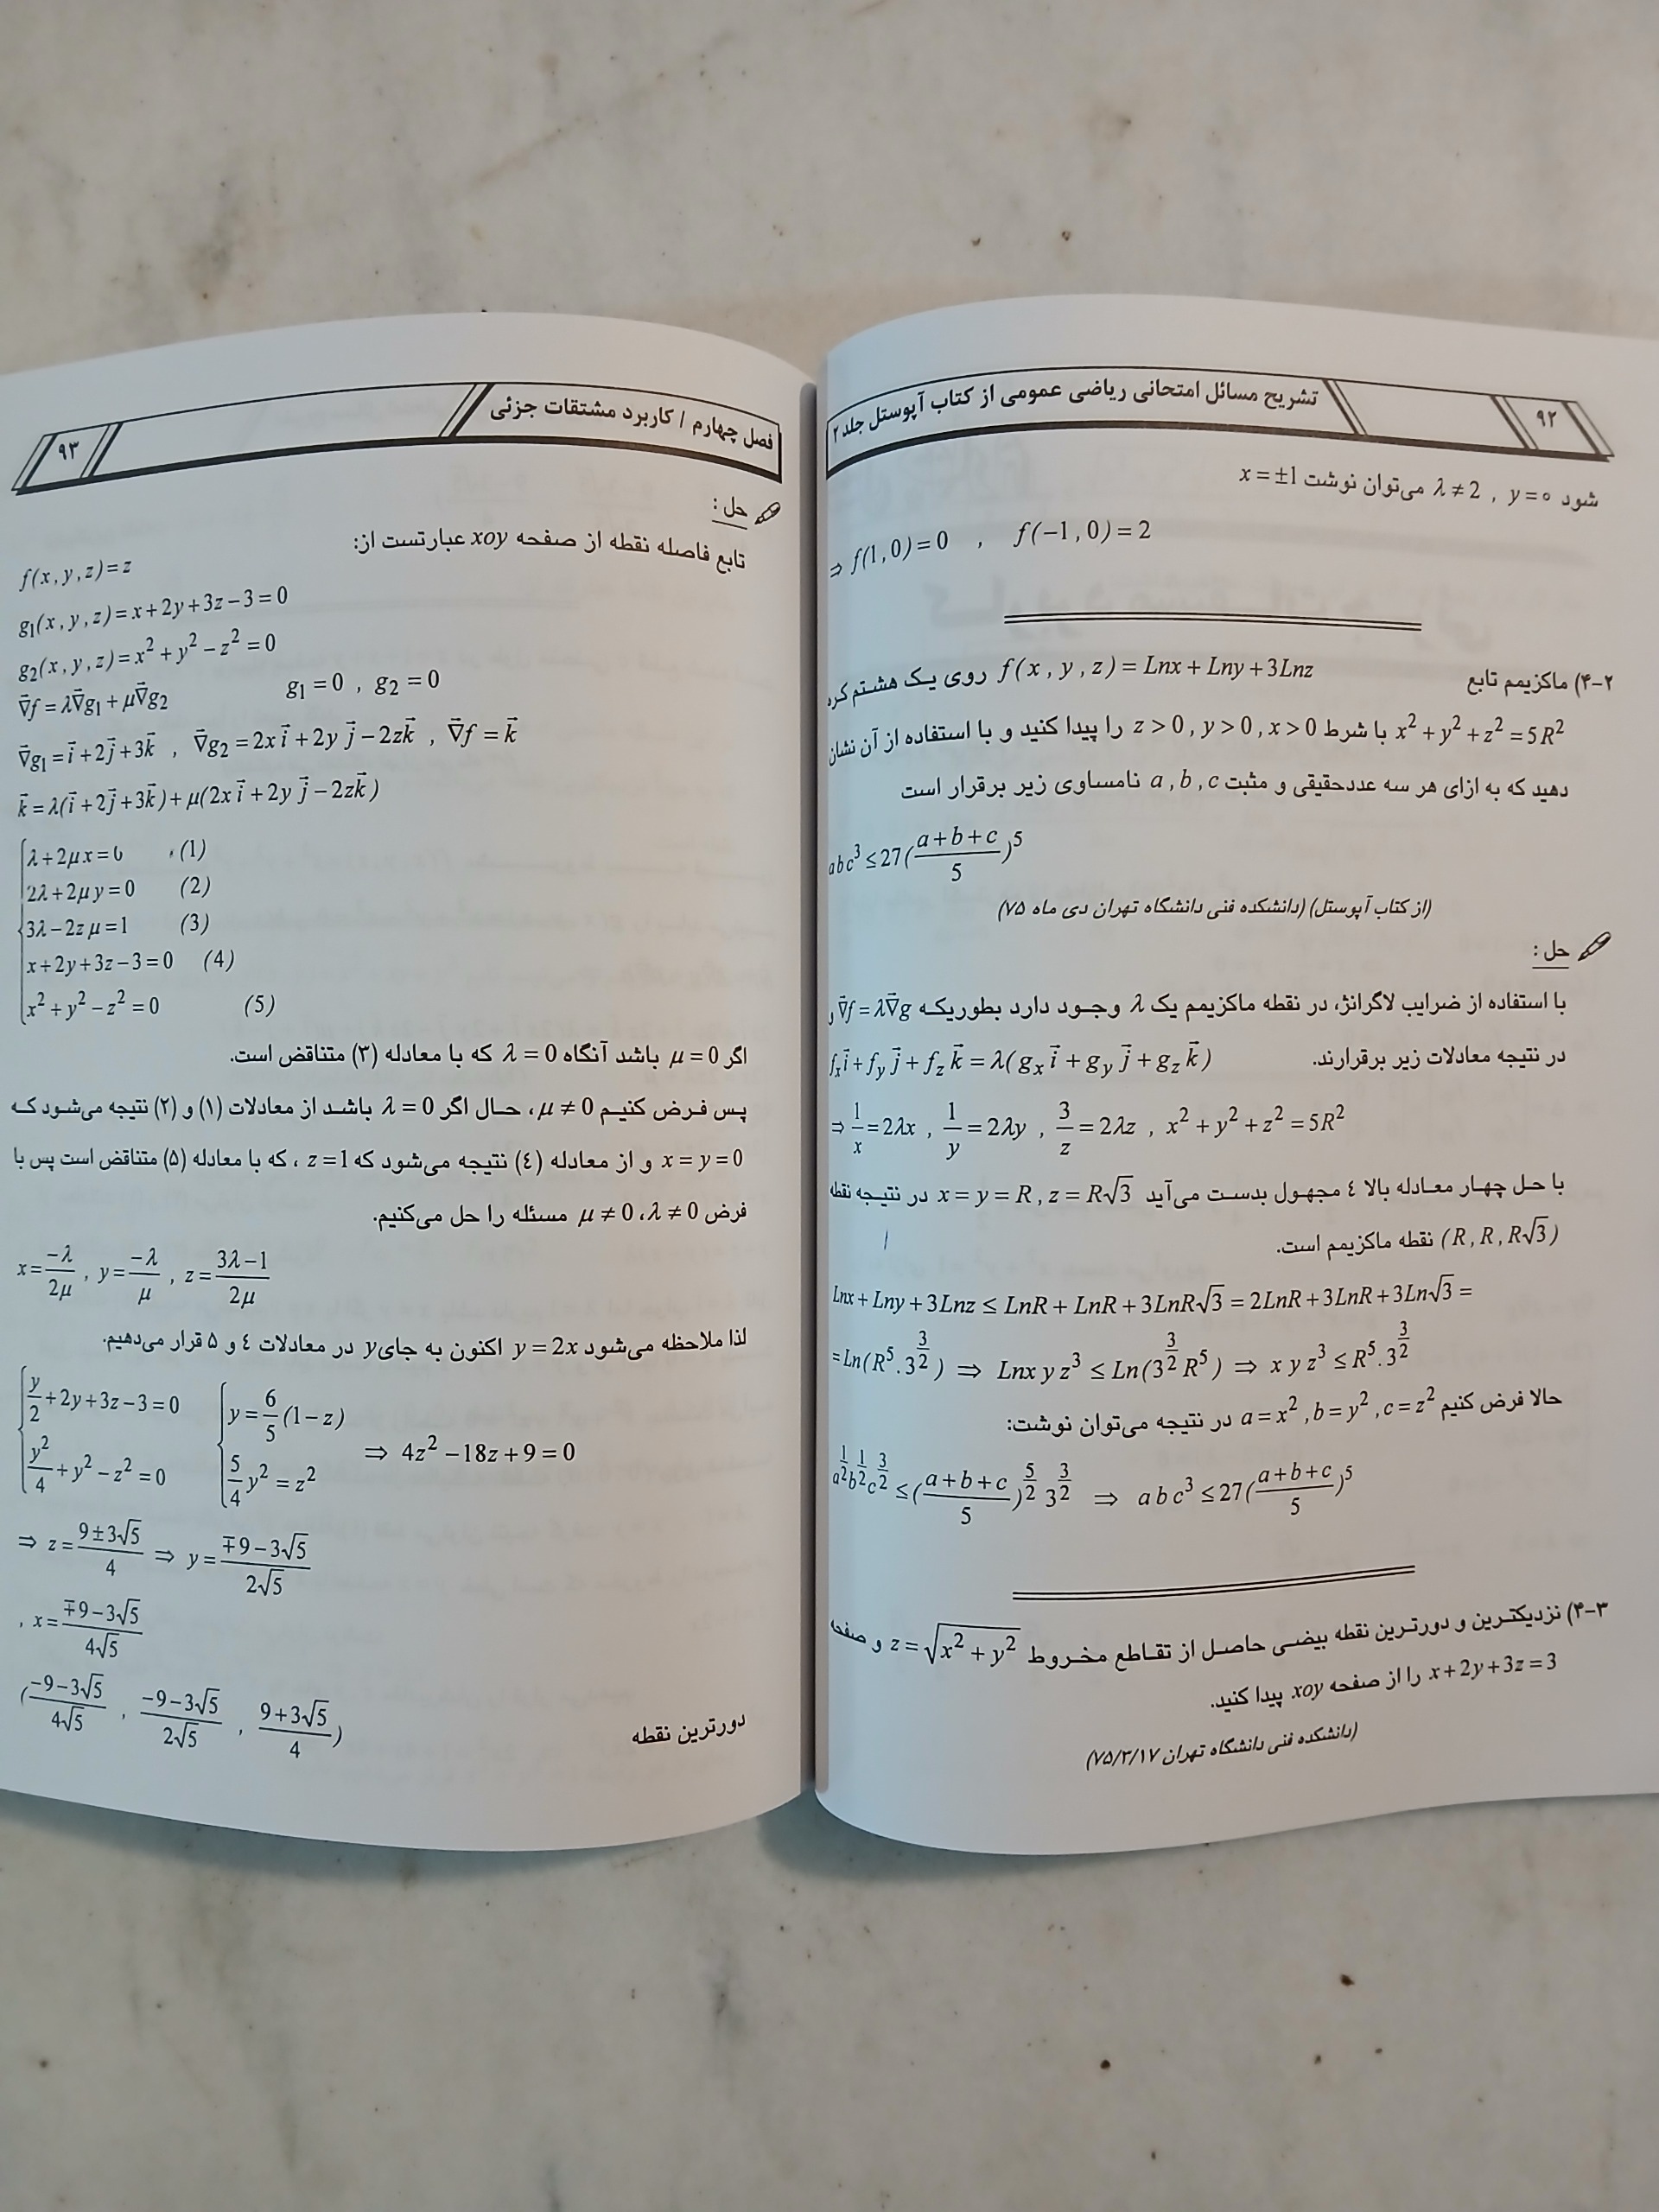 ۹۲
تشریح مسائل امتحانی ریاضی عمومی از کتاب آپوستل جلد ۲
شود y = ∘ , λ ≠ 2 می‌توان نوشت x = ±1
⇒ f(1,0) = 0 , f(−1,0) = 2
۴-۲) ماکزیمم تابع f(x , y , z) = Lnx + Lny + 3Lnz روی یک هشتم کره
x² + y² + z² = 5R² با شرط z > 0 , y > 0 , x > 0 را پیدا کنید و با استفاده از آن نشان
دهید که به ازای هر سه عددحقیقی و مثبت a , b , c نامساوی زیر برقرار است
abc³ ≤ 27((a + b + c)/5)⁵
(از کتاب آپوستل) (دانشکده فنی دانشگاه تهران دی ماه ۷۵)
حل :
با استفاده از ضرایب لاگرانژ، در نقطه ماکزیمم یک λ وجود دارد بطوریکه ∇⃗f = λ∇⃗g و
در نتیجه معادلات زیر برقرارند. fₓi⃗ + f_y j⃗ + f_z k⃗ = λ(gₓ i⃗ + g_y j⃗ + g_z k⃗)
⇒ 1/x = 2λx , 1/y = 2λy , 3/z = 2λz , x² + y² + z² = 5R²
با حل چهار معادله بالا ٤ مجهول بدست می‌آید x = y = R , z = R√3 در نتیجه نقطه
(R , R , R√3) نقطه ماکزیمم است.
Lnx + Lny + 3Lnz ≤ LnR + LnR + 3LnR√3 = 2LnR + 3LnR + 3Ln√3 =
= Ln(R⁵ . 3^(3/2)) ⇒ Lnx y z³ ≤ Ln(3^(3/2) R⁵) ⇒ x y z³ ≤ R⁵ . 3^(3/2)
حالا فرض کنیم a = x² , b = y² , c = z² در نتیجه می‌توان نوشت:
a^(1/2) b^(1/2) c^(3/2) ≤ ((a + b + c)/5)^(5/2) 3^(3/2) ⇒ a b c³ ≤ 27((a + b + c)/5)⁵
۴-۳) نزدیکترین و دورترین نقطه بیضی حاصل از تقاطع مخروط z = √(x² + y²) و صفحه
x + 2y + 3z = 3 را از صفحه xoy پیدا کنید.
(دانشکده فنی دانشگاه تهران ۷۵/۳/۱۷)
فصل چهارم / کاربرد مشتقات جزئی
۹۳
حل :
تابع فاصله نقطه از صفحه xoy عبارتست از:
f(x , y , z) = z
g₁(x , y , z) = x + 2y + 3z − 3 = 0
g₂(x , y , z) = x² + y² − z² = 0
∇⃗f = λ∇⃗g₁ + μ∇⃗g₂ g₁ = 0 , g₂ = 0
∇⃗g₁ = i⃗ + 2j⃗ + 3k⃗ , ∇⃗g₂ = 2x i⃗ + 2y j⃗ − 2zk⃗ , ∇⃗f = k⃗
k⃗ = λ(i⃗ + 2j⃗ + 3k⃗) + μ(2x i⃗ + 2y j⃗ − 2zk⃗)
λ + 2μ x = 0 (1)
2λ + 2μ y = 0 (2)
3λ − 2z μ = 1 (3)
x + 2y + 3z − 3 = 0 (4)
x² + y² − z² = 0 (5)
اگر μ = 0 باشد آنگاه λ = 0 که با معادله (۳) متناقض است.
پس فرض کنیم μ ≠ 0، حال اگر λ = 0 باشد از معادلات (۱) و (۲) نتیجه می‌شود که
x = y = 0 و از معادله (٤) نتیجه می‌شود که z = 1 ، که با معادله (۵) متناقض است پس با
فرض μ ≠ 0 ،λ ≠ 0 مسئله را حل می‌کنیم.
x = −λ/2μ , y = −λ/μ , z = (3λ − 1)/2μ
لذا ملاحظه می‌شود y = 2x اکنون به جای y در معادلات ٤ و ۵ قرار می‌دهیم.
y/2 + 2y + 3z − 3 = 0 y = 6/5 (1 − z)
⇒ 4z² − 18z + 9 = 0
y²/4 + y² − z² = 0 5/4 y² = z²
⇒ z = (9 ± 3√5)/4 ⇒ y = (∓9 − 3√5)/2√5
, x = (∓9 − 3√5)/4√5
((−9 − 3√5)/4√5 , (−9 − 3√5)/2√5 , (9 + 3√5)/4) دورترین نقطه